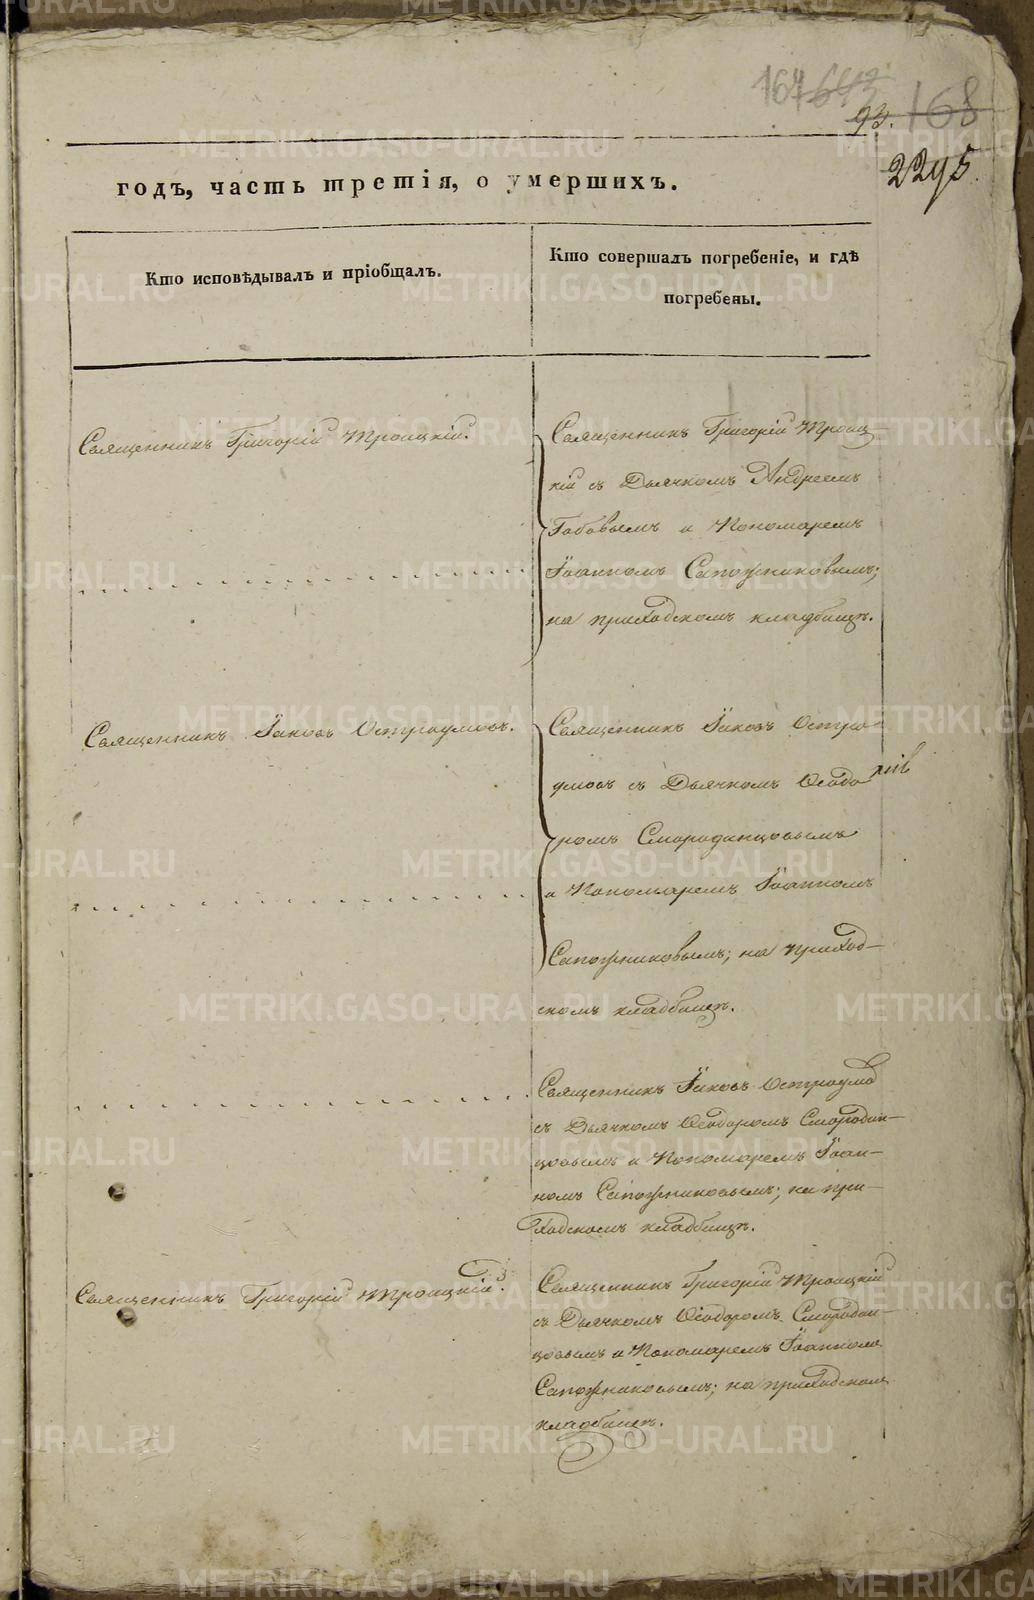 164 642
93. 168
2295.
годъ, часть третія, о умершихъ.
Кто исповѣдывалъ и пріобщалъ.
Кто совершалъ погребеніе, и гдѣ
погребены.
Священникъ Григорій Троицкій.
Священникъ Григорій Троиц-
кій съ Дьячкомъ Андреемъ
Бабовымъ и Пономаремъ
Іоанномъ Сапожниковымъ;
на приходскомъ кладбищѣ.
Священникъ Іаковъ Остроумовъ.
Священникъ Іаковъ Остро-
умовъ съ Дьячкомъ Ѳеодо
ромъ Смородинцовымъ
и Пономаремъ Іоанномъ
Сапожниковымъ; на приход-
скомъ кладбищѣ.
Священникъ Іаковъ Остроумов
съ Дьячкомъ Ѳеодоромъ Смородин-
цовымъ и Пономаремъ Іоан-
номъ Сапожниковымъ; на при-
ходскомъ кладбищѣ.
Священникъ Григорій Троицкій.
Священникъ Григорій Троицкій
съ Дьячкомъ Ѳеодоромъ Смородин-
цовымъ и Пономаремъ Іоанномъ
Сапожниковымъ; на приходскомъ
кладбищѣ.
METRIKI.GASO-URAL.RU